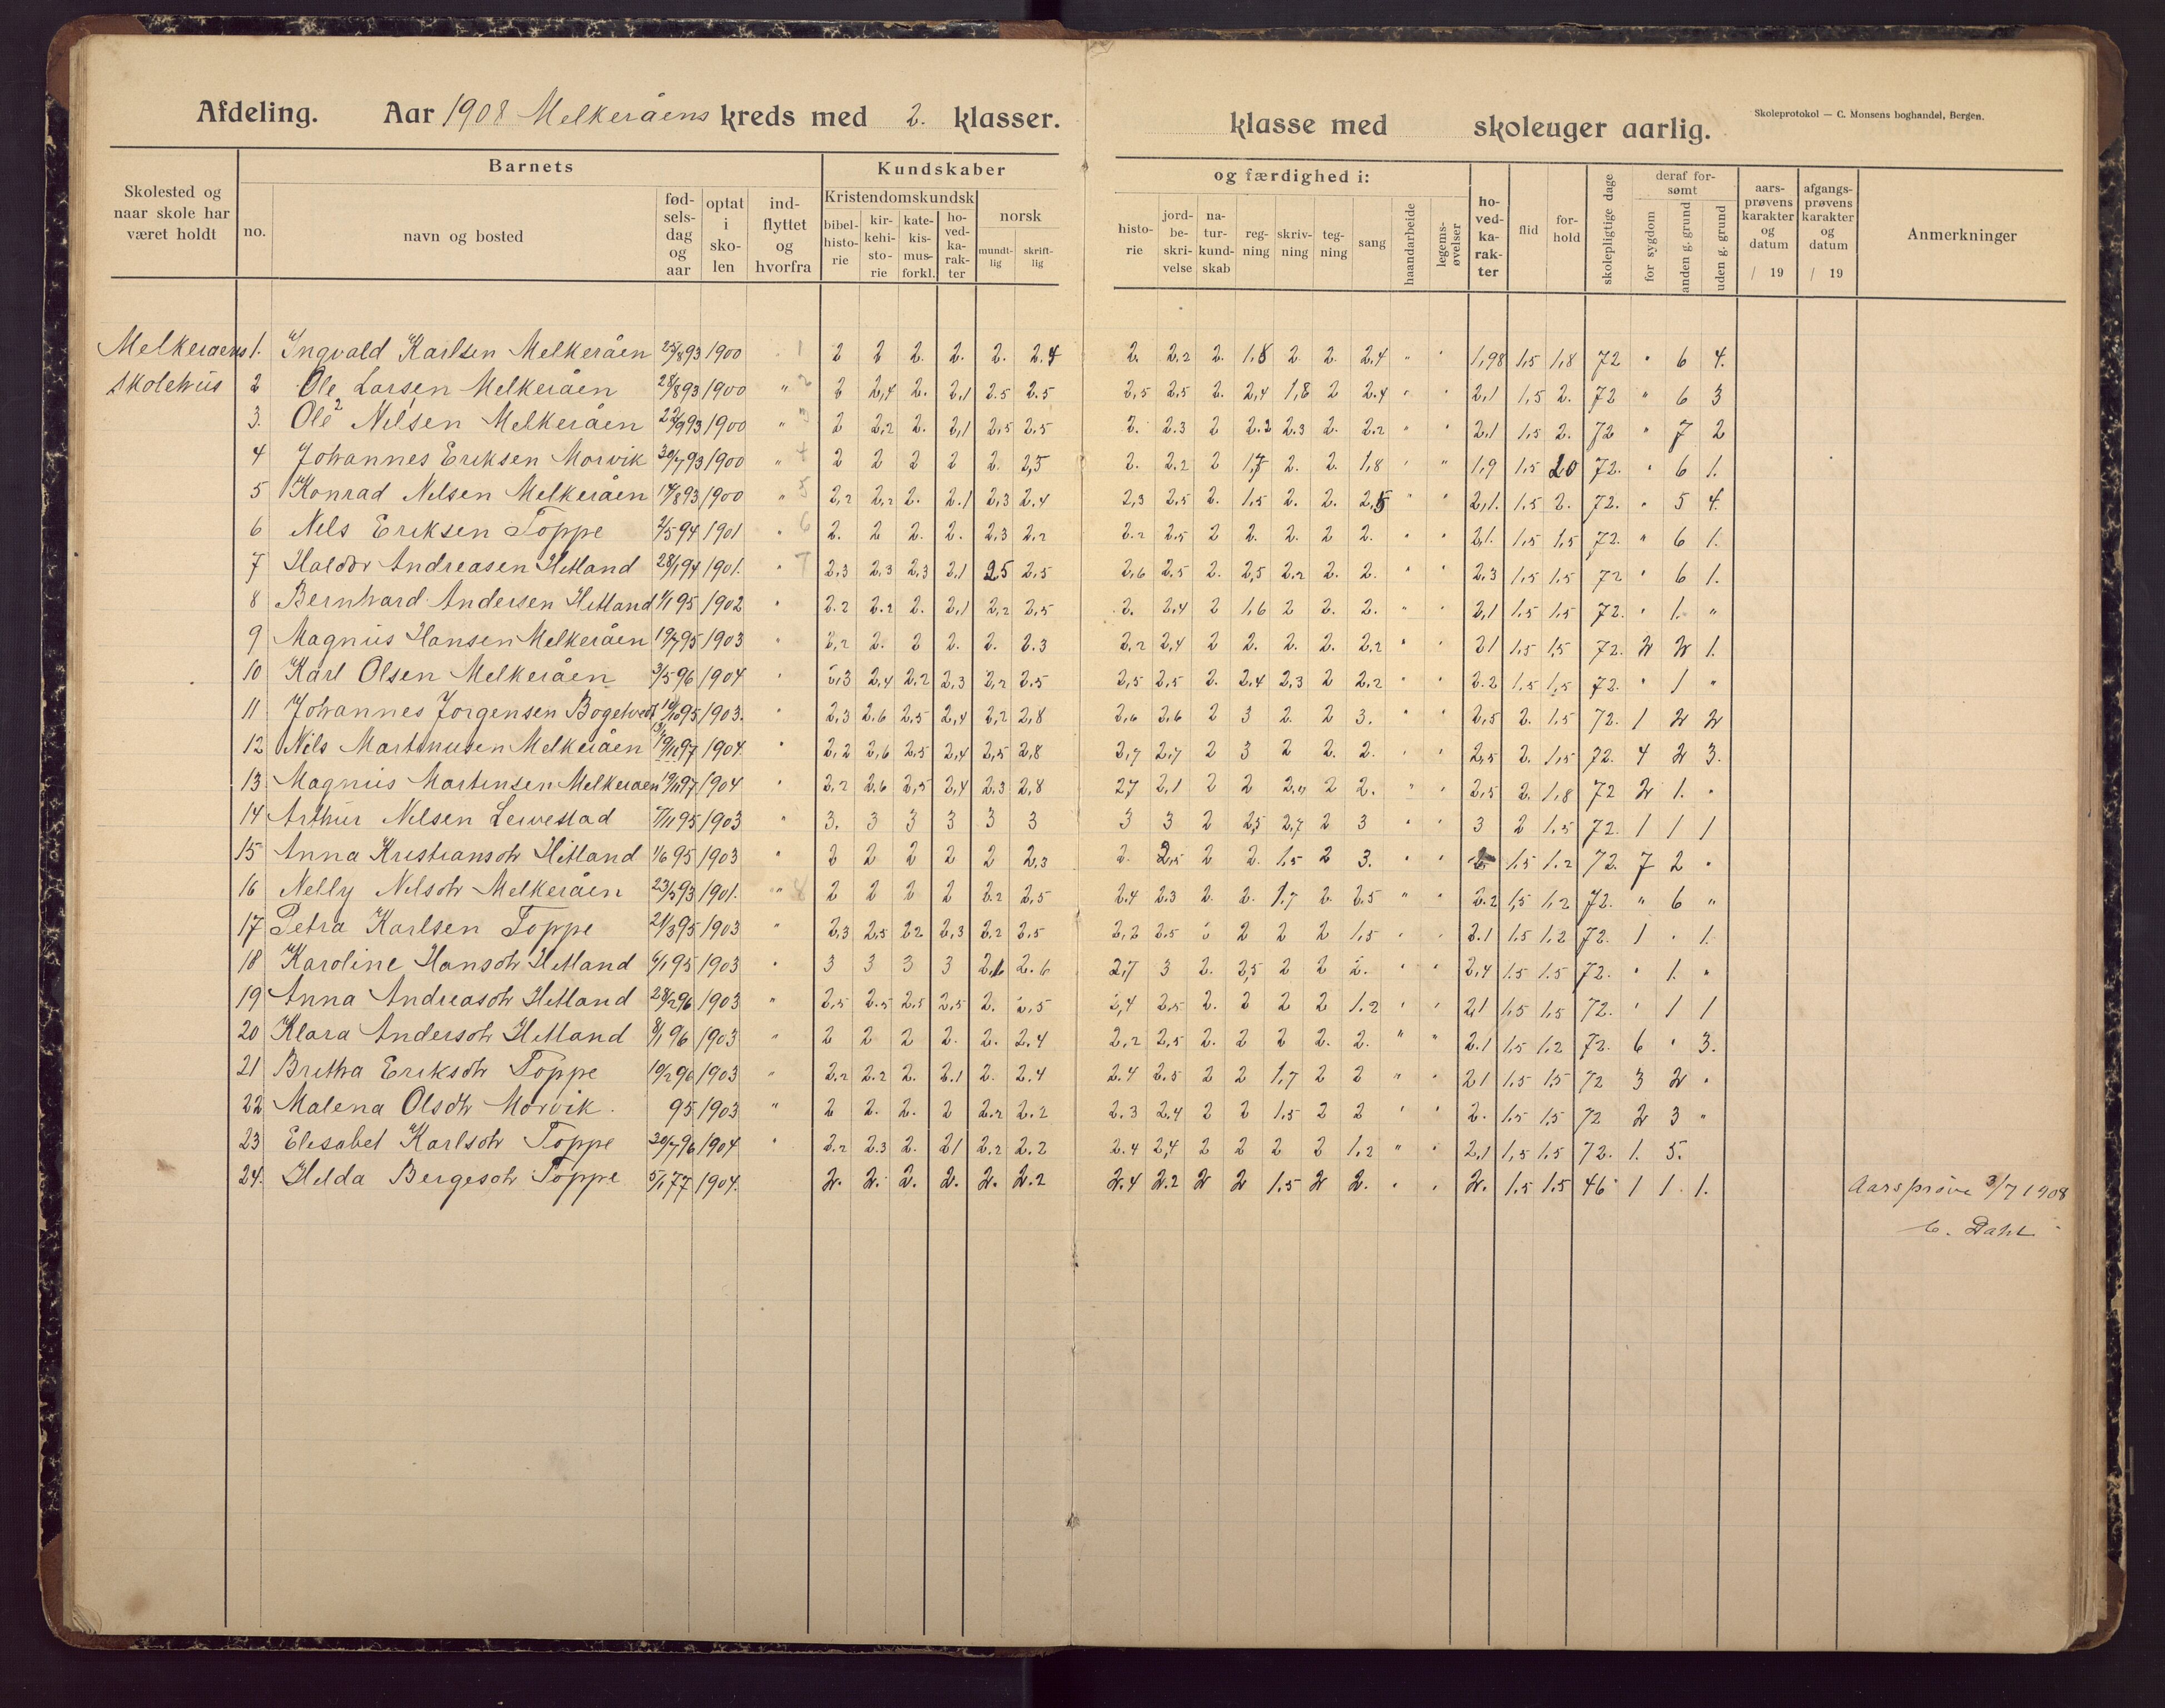 Afdeling. Aar 1908 Melkeråens kreds med 2. klasser.
klasse med skoleuger aarlig.
Skoleprotokol — C. Monsens boghandel, Bergen.
Skolested og naar skole har været holdt
Barnets
no.
navn og bosted
fød-sels-dag og aar
optat i sko-len
ind-flyttet og hvorfra
Kundskaber
Kristendomskundsk
bibel-histo-rie
kir-kehi-sto-rie
kate-kis-mus-forkl.
ho-ved-ka-rak-ter
norsk
mundt-lig
skrift-lig
og færdighed i:
histo-rie
jord-be-skri-velse
na-tur-kund-skab
reg-ning
skriv-ning
teg-ning
sang
haandarbeide
legems-øvelser
ho-ved-ka-rak-ter
flid
for-hold
skolepligtige dage
deraf for-sømt
for sygdom
anden g. grund
uden g. grund
aars-prøvens karakter og datum / 19
afgangs-prøvens karakter og datum / 19
Anmerkninger
Melkeraens 1. Ingvald Karlsen Melkeråen 25/8 93 1900 1 2 2 2. 2. 2. 2.4 2. 2,2 2. 1,8 2 2. 2,4 " " 1,98 1,5 1,8 72 " 6 4.
skolehus 2 Ole Larsen Melkeråen 28/8 93 1900 " 2 2 2,4 2. 2,1 2.5 2.5 2,5 2,5 2. 2,4 1,8 2 2.4 " " 2,1 1,5 2. 72 " 6 3
3. Ole² Nilsen Melkeråen 22/9 93 1900 " 3 2 2,2 2. 2,1 2,5 2,5 2. 2.3 2 2.2 2.3 2. 2.2 " " 2,1 1,5 2. 72 " 7 2
4 Johannes Eriksen Morvik 30/7 93 1900 " 4 2 2 2 2 2. 2,5 2. 2.2 2 1,7 2. 2. 1,8 " " 1,9 1,5 20 72. " 6 1.
5 Konrad Nilsen Melkeråen 14/8 93 1900 " 5 2,2 2,2 2. 2.1 2,3 2.4 2,3 2,5 2. 1,5 2. 2. 2,5 " " 2,1. 1.5 2. 72. " 5 4.
6 Nils Eriksen Toppe 2/5 94 1901 " 6 2. 2 2. 2. 2,3 2,2 2.2 2,5 2 2. 2. 2 2. " " 2,1. 1,5 1,5 72. " 6 1.
7 Haldor Andreasen Hetland 28/1 94 1901. " 7 2,3 2.3 2,3 2,1 2.5 2,5 2,6 2,5 2. 2,5 2.2 2. 2. " " 2.3 1,5 1,5 72 " 6 1.
8 Bernhard Andersen Hetland 1/1 95 1902 " 2.2 2.2 2. 2,1 2,2 2,5 2. 2,4 2 1,6 2 2. 2. " " 2,1 1,5 1,5 72. " 1. "
9 Magnus Hansen Melkeråen 19/7 95 1903 " 2,2 2. 2 2. 2. 2.3 2,2 2,4 2 2. 2. 2. 2,2 " " 21 1,5 1,5 72. 2 2 1.
10 Karl Olsen Melkeråen 3/5 96 1904 " 2,3 2,4 2.2 2,3 2,2 2.5 2,5 2,5 2. 2,4 2,3 2 2,2 " " 2.2 1,5 1,5 72. " 1 "
11 Johannes Jörgensen Bogetvedt 10/10 95 1903. 2,3 2.6 2,5 2,4 2,2 2,8 2,6 2,6 2 3 2. 2 3. " " 2,5 2. 1.5 72. 1 2 2
12 Nils Martinusen Melkeråen 19/11 97 1904. " 2,2 2,6 2,5 2,4 2,5 2,8 2,7 2.7 2 3 2 2. 2. " " 2,5 2. 1,5 72. 4 2 3.
13 Magnus Martinsen Melkeraen 19/11 97 1904 " 2,2 2.6 2,5 2,4 2.3 2,8 27 2,1 2 2 2 2 2. " " 2,5 2. 1,8 72 2 1. "
14 Arthur Nilsen Lervestad 7/11 95 1903 " 3. 3 3 3 3 3 3 3 2 2,5 2,7 2 3 " " 3 2 1.5 72. 1 1 1
15 Anna Kristiansdtr Hitland 1/6 95 1903 " 2 2 2 2 2 2,3 2. 2,5 2 2. 1.5 2 3. " " 1,5 1.2 72. 7 2 "
16 Nelly Nilsdtr Melkeråen 23/3 93 1901. " 8 2 2 2 2 2.2 2,5 2.4 2.3 2. 2. 1.7 2. 2.5 " " 2.2 1,5 1,2 72. " 6 "
17 Petra Karlsen Toppe 21/3 95 1903 " 2,3 2,5 22 2,3 2.2 2,5 2,2 2.5 2 2 2 2 1,5 " " 2.1 1.5 1.2 72. 1 " 1.
18 Karoline Hansdtr Hetland 6/1 95 1903 " 3 3 3 3 2,6 2.6 2,7 3 2. 2,5 2 2 2. " " 2,4 1.5 1.5 72. " 1. "
19 Anna Andreasdtr Hetland 28/2 96 1903 " 2,5 2.5 2,5 2,5 2. 2,5 2,4 2,5 2. 2 2 2 1.2 " " 21 1,5 1,5 72. " 1 1
20 Klara Andersdtr Hetland 8/1 96 1903 " 2 2 2 2. 2. 2,4 2,2 2,5 2. 2 2 2. 2. " " 2.1 1,5 1,2 72. 6 " 3.
21 Britha Eriksdtr Toppe 10/2 96 1903 " 2.2 2.2 2. 2.1 2. 2.4 2.4 2.5 2 2 1,7 2 2 " " 21 1.5 1.5 72 3 2 "
22 Malena Olsdtr Morvik. 95 1903 " 2 2. 2. 2 2.2 2.2 2.3 2,4 2 2 1.5 2 2 " " 2. 1.5 1.5 72 2 3 "
23 Elisabet Karlsdtr Toppe 20/7 96 1904 " 2.2 2.3 2. 21 2.2 2.2 2.4 2,4 2 2 2 2 1.2 " " 2,1 1,5 1.5 72. 1. 5.
24. Helda Bergesdtr Toppe 5/1 77 1904. 2. 2. 2. 2. 2. 2.2 2.4 2.2 2 2 1.5 2 2. " " 2. 1.5 1.5 46 1 1. 1.
Aarsprøve 3/7 1908
C. Dahl